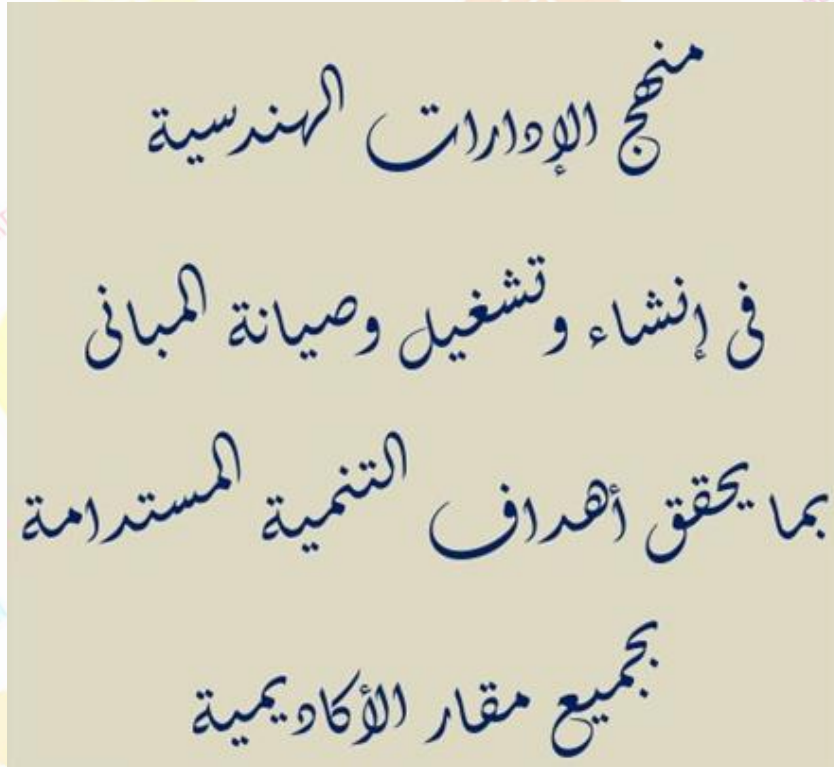 منهج الإدارات الهندسية
فى إنشاء وتشغيل وصيانة المبانى
بما يحقق أهداف التنمية المستدامة
بجميع مقار الأكاديمية